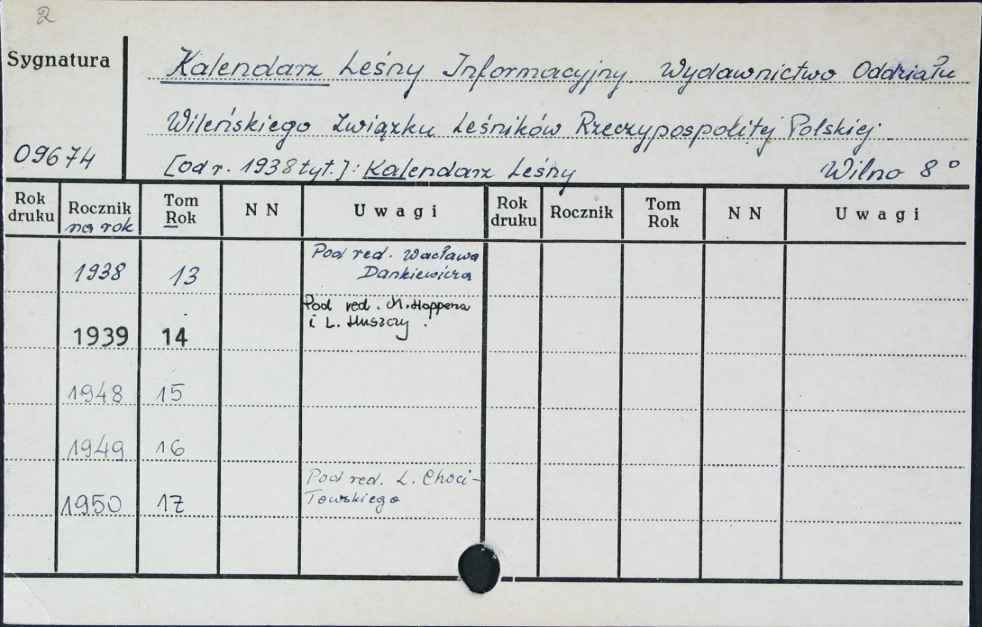 2
Sygnatura
Kalendarz Leśny Informacyjny. Wydawnictwo Oddziału
Wileńskiego Związku Leśników Rzeczypospolitej Polskiej.
09674
[od r. 1938 tyt.]: Kalendarz Leśny
Wilno 8°
Rok druku Rocznik na rok Tom Rok NN Uwagi Rok druku Rocznik Tom Rok NN Uwagi
1938 13 Pod red. Wacława
Dankiewicza
1939 14 Pod red. M. Hoppena
i L. Huszczy.
1948 15
1949 16
1950 17 Pod red. L. Choci-
łowskiego